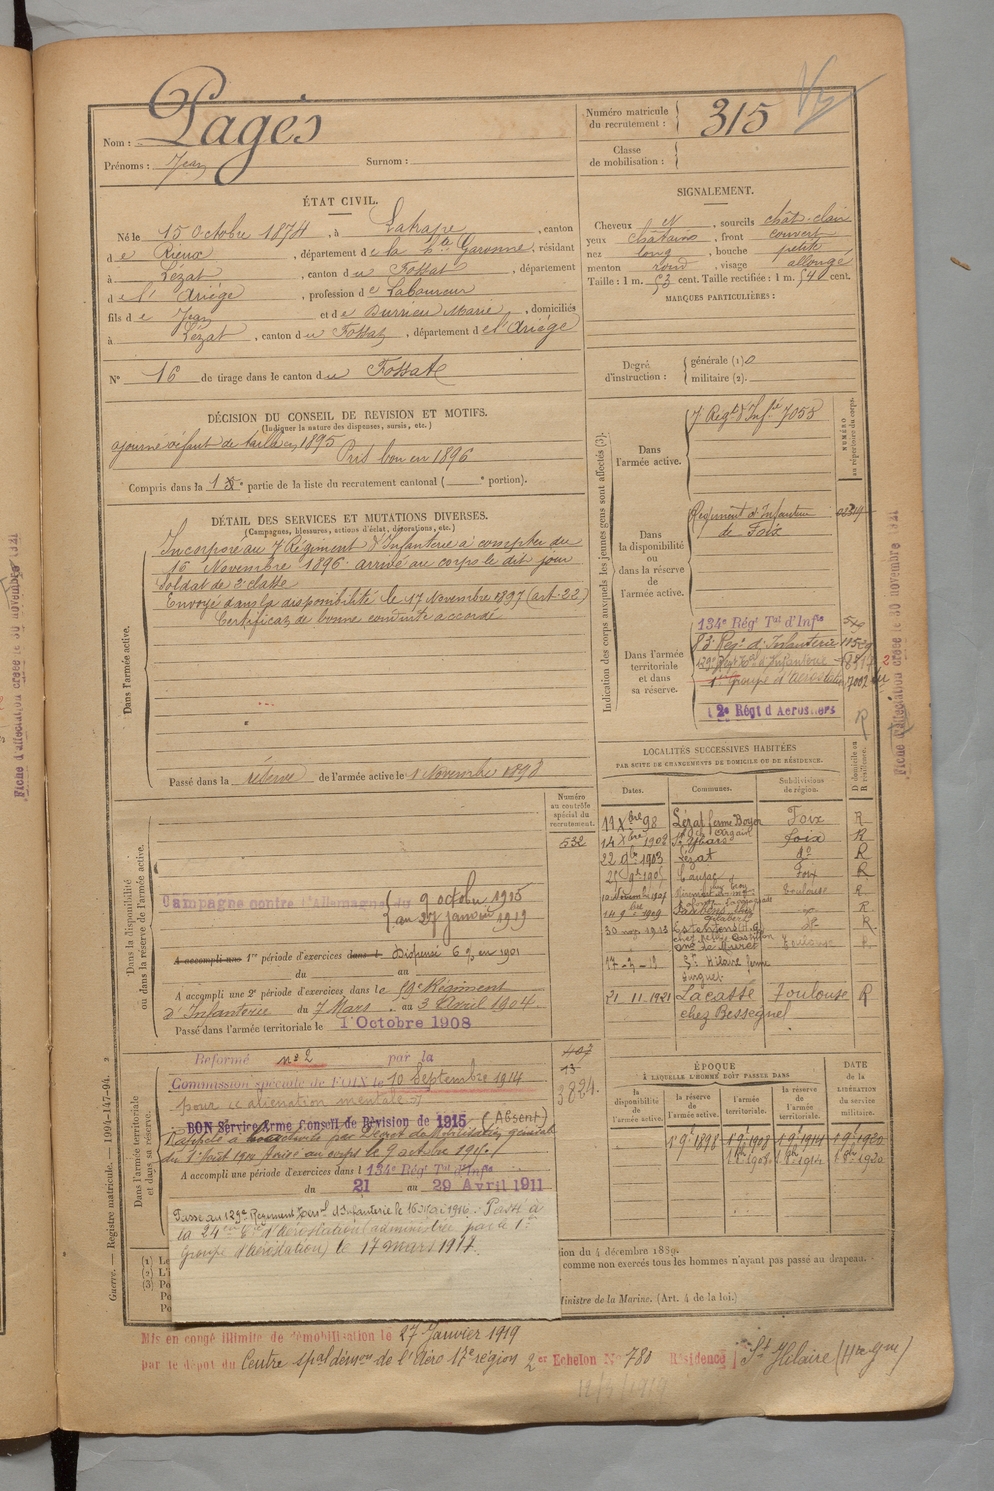 Nom : Pagès
Prénoms : Jean Surnom :
Numéro matricule du recrutement : 315
Classe de mobilisation :
ÉTAT CIVIL.
Né le 15 Octobre 1874, à Latrape, canton
de Rieux, département de la Hte Garonne, résidant
à Lézat, canton du Fossat, département
de l'Ariège, profession de Laboureur
fils de Jean et de Durrieu Marie, domiciliés
à Lézat, canton du Fossat, département de l'Ariège
N° 16 de tirage dans le canton du Fossat
SIGNALEMENT.
Cheveux N, sourcils chât-clair
yeux châtains, front couvert
nez long, bouche petite
menton rond, visage allongé
Taille : 1 m. 53 cent. Taille rectifiée : 1 m. 540 cent.
MARQUES PARTICULIÈRES :
Degré d'instruction : générale (1) 0
militaire (2).
DÉCISION DU CONSEIL DE REVISION ET MOTIFS.
(Indiquer la nature des dispenses, sursis, etc.)
ajourné défaut de taille en 1895
Pris bon en 1896
Compris dans la 1e partie de la liste du recrutement cantonal ( e portion).
DÉTAIL DES SERVICES ET MUTATIONS DIVERSES.
(Campagnes, blessures, actions d'éclat, décorations, etc.)
Dans l'armée active.
Incorporé au 7 Régiment d'Infanterie à compter du
16 Novembre 1896 arrivé au corps le dit jour
Soldat de 2e classe
Envoyé dans la disponibilité le 17 Novembre 1897 (art. 23)
Certificat de bonne conduite accordé
Passé dans la réserve de l'armée active le 1 Novembre 1898
Indication des corps auxquels les jeunes gens sont affectés (3).
NUMÉRO au répertoire du corps.
Dans l'armée active.
7 Régt d'Infrie 7055
Dans la disponibilité ou dans la réserve de l'armée active.
Régiment d'Infanterie
de Foix
Dans l'armée territoriale et dans sa réserve.
134e Régt Tal d'Infie
83 Régt d'Infanterie
129e Régt Tal d'Infanterie
1er groupe d'Aérostation
2e Régt d Aérostiers
Fiche d'affectation créée le 30 novembre 1921
LOCALITÉS SUCCESSIVES HABITÉES
PAR SUITE DE CHANGEMENTS DE DOMICILE OU DE RÉSIDENCE.
Dates. Communes. Subdivisions de région. D domicile ou R résidence.
19 Xbre 98 Lézat ferme Boyer Foix R
14 Xbre 1902 St Ybars Foix R
22 1903 Lézat do R
Foix R
Toulouse R
R
30 1913 R
St Hilaire ferme
21 11 1921 Lacasse Toulouse R
chez Besseguel
Numéro au contrôle spécial du recrutement.
532
Dans la disponibilité ou dans la réserve de l'armée active.
Campagne contre l'Allemagne du 9 octobre 1915
au 27 janvier 1919
A accompli une 1re période d'exercices dans l Dispensé en 1901
du au
A accompli une 2e période d'exercices dans le 59e Régiment
d'Infanterie du 7 Mars au 3 Avril 1904.
Passé dans l'armée territoriale le 1 Octobre 1908
Dans l'armée territoriale et dans sa réserve.
Réformé n° 2 par la
Commission spéciale de FOIX le 10 Septembre 1914
pour aliénation mentale
BON Service Armé Conseil de Révision de 1915 (Absent)
Rappelé à l'activité par Décret de Mobilisation générale
du 1er Août 1914 Arrivé au corps le 9 octobre 1915
A accompli une période d'exercices dans l 134e Régt Tal d'Infie
du 21 au 29 Avril 1911
Passé au 129e Régiment Terral d'Infanterie le 16 Mai 1916. Passé à
la 24e Cie d'Aérostation (administrée par le 1er
groupe d'Aérostation) le 17 mars 1917.
3824.
ÉPOQUE
A LAQUELLE L'HOMME DOIT PASSER DANS
la disponibilité de l'armée active.
la réserve de l'armée active.
l'armée territoriale.
la réserve de l'armée territoriale.
DATE de la LIBÉRATION du service militaire.
1 9e 1898 1 9e 1908 1 9e 1914 1 9e 1920
1 8bre 1908 1 8bre 1914 1 8bre 1920
Guerre. — Registre matricule. — 1094-147-94.
ion du 4 décembre 1889.
comme non exercés tous les hommes n'ayant pas passé au drapeau.
Ministre de la Marine. (Art. 4 de la loi.)
Mis en congé illimité de démobilisation le 27 Janvier 1919
par le dépôt du Centre spal démon de l'Aéro 17e région 2er Echelon N° 780 Résidence St Hilaire (Hte Gne)